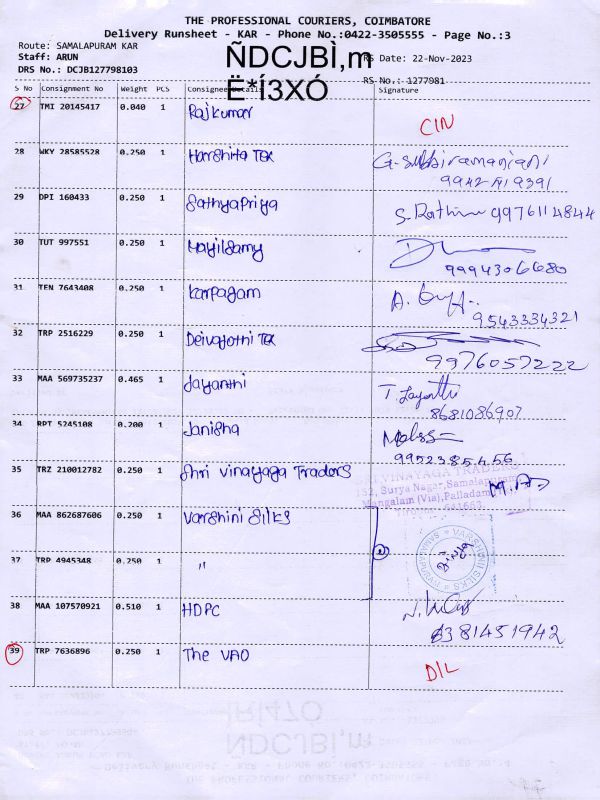 THE PROFESSIONAL COURIERS, COIMBATORE
Delivery Runsheet - KAR - Phone No.:0422-3505555 - Page No.:3
Route: SAMALAPURAM KAR
Staff: ARUN RS Date: 22-Nov-2023
DRS No.: DCJB127798103 RS No.: 1277981
ÑDCJBÌ,m
Ë*Í3XÓ
S No Consignment No Weight PCS Consignee Details Signature
27 TMI 20145417 0.040 1 Rajkumar CIN
28 WKY 28585528 0.250 1 Harshita Tex G. Subbiramaniani
29 DPI 160433 0.250 1 Sathyapriya S. Rathi 9976114844
30 TUT 997551 0.250 1 Mayilsamy
9994306680
31 TEN 7643408 0.250 1 Karpagam
9543334321
32 TRP 2516229 0.250 1 Deivajothi Tex
9976057222
33 MAA 569735237 0.465 1 Jayanthi T. Jayanthi
8681086907
34 RPT 5245108 0.200 1 Janisha
9952385456
35 TRZ 210012782 0.250 1 Shri Vinayaga Tradors
VINAYAGA TRADERS
152, Surya Nagar, Samalapuram
Mangalam (Via), Palladam
36 MAA 862687606 0.250 1 Varshini Silks
VARSHINI SILKS
SAMALAPURAM
Divya
37 TRP 4945348 0.250 1 "
38 MAA 107570921 0.510 1 HDPC
6381451942
39 TRP 7636896 0.250 1 The VAO D/L